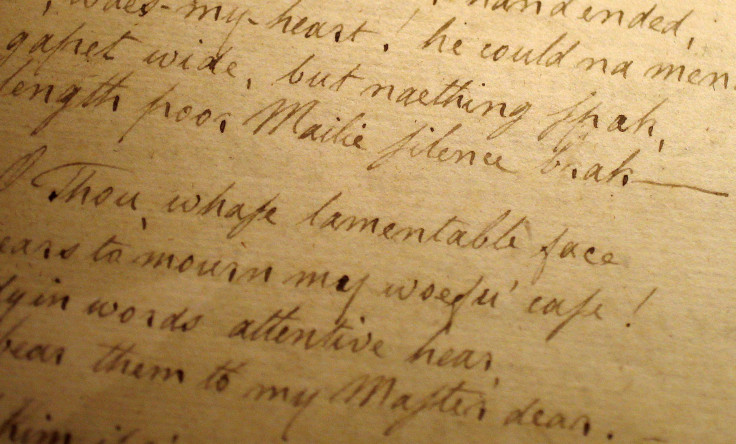 hand ended,
waes-my-heart! he could na men
gapet wide, but naething ſpak,
length poor Mailie ſilence brak—
O Thou, whaſe lamentable face
ears to mourn my woefu' caſe!
yin words attentive hear,
bear them to my Maſter dear.